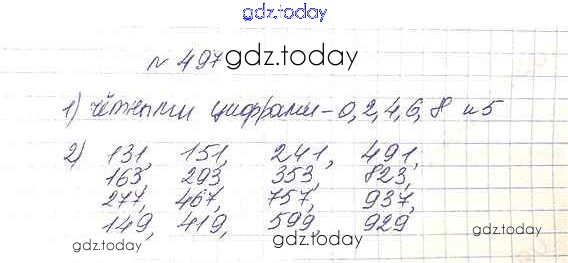 gdz.today
№ 497 gdz.today
1) чётными цифрами - 0, 2, 4, 6, 8 и 5
2) 131, 151, 241, 491,
163, 293, 353, 823,
277, 467, 757, 937,
149, 419, 599, 929
gdz.today gdz.today